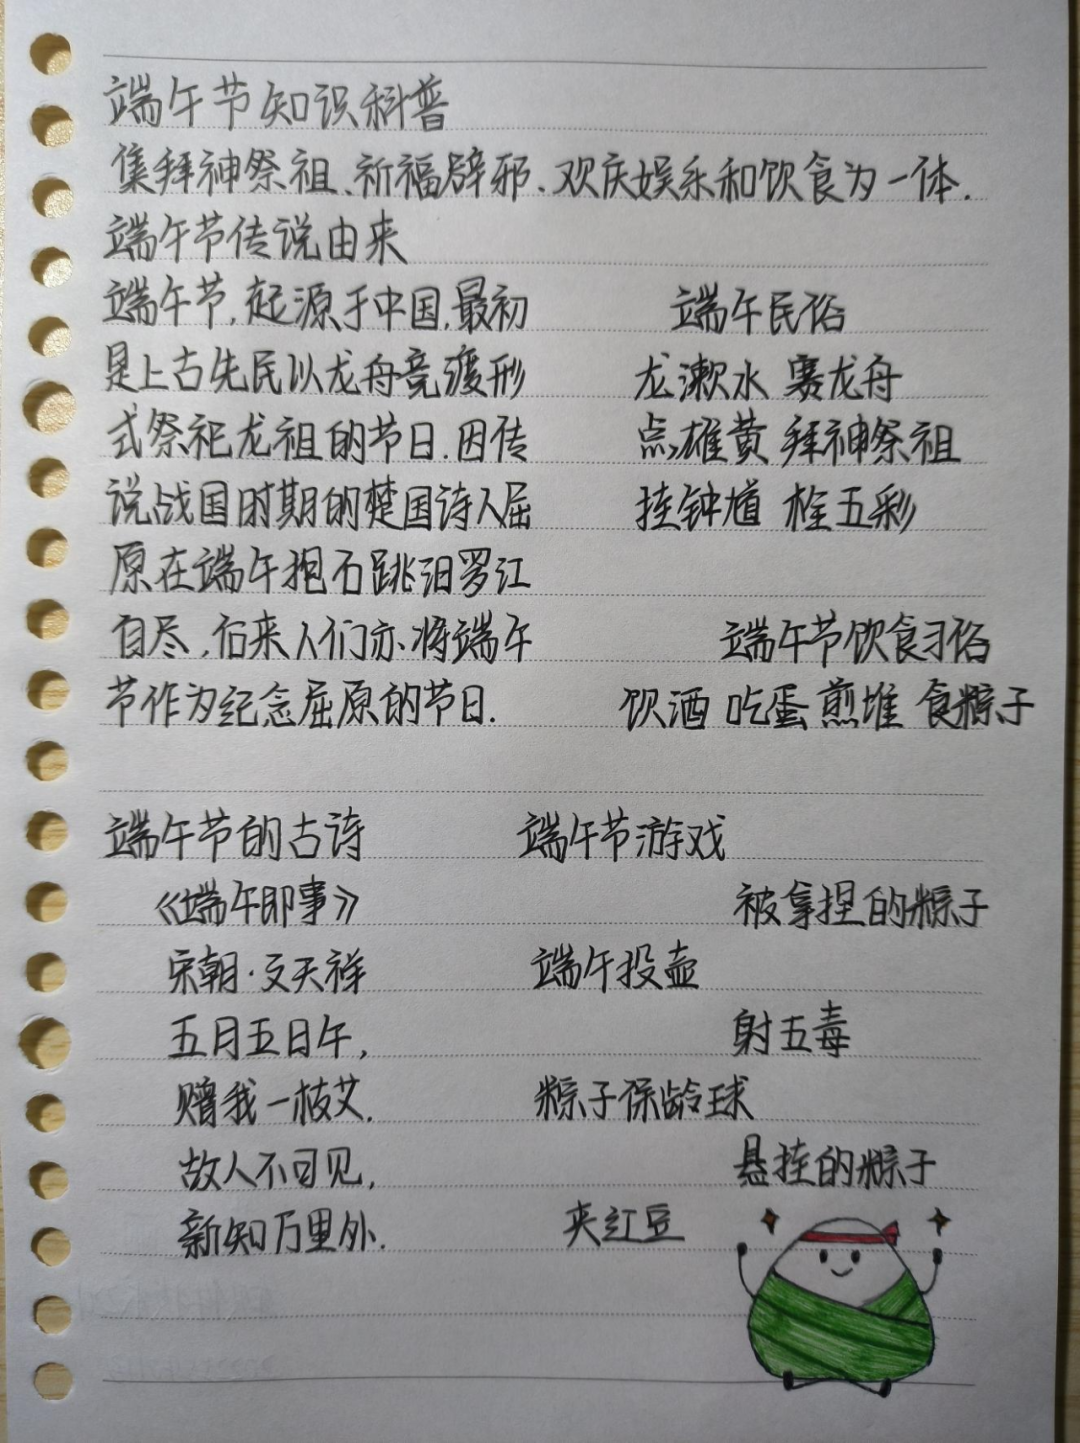 端午节知识科普
集拜神祭祖、祈福辟邪、欢庆娱乐和饮食为一体.
端午节传说由来
端午节,起源于中国,最初
是上古先民以龙舟竞渡形
式祭祀龙祖的节日.因传
说战国时期的楚国诗人屈
原在端午抱石跳汨罗江
自尽,后来人们亦将端午
节作为纪念屈原的节日.
端午民俗
龙漱水 赛龙舟
点雄黄 拜神祭祖
挂钟馗 栓五彩
端午节饮食习俗
饮酒 吃蛋 煎堆 食粽子
端午节的古诗
《端午即事》
宋朝·文天祥
五月五日午,
赠我一枝艾.
故人不可见,
新知万里外.
端午节游戏
被拿捏的粽子
端午投壶
射五毒
粽子保龄球
悬挂的粽子
夹红豆